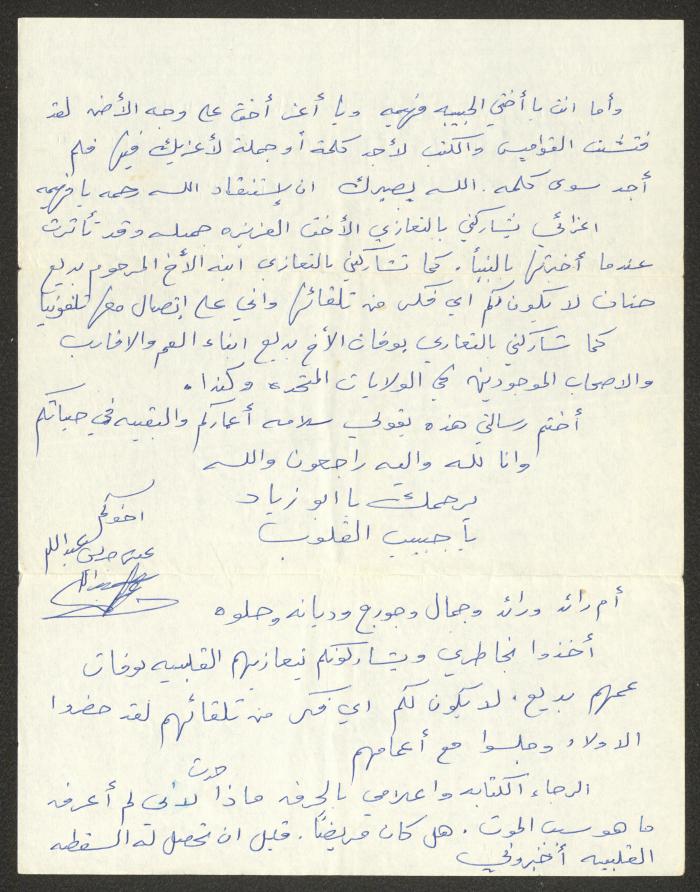 وأما انت يا أختي الحبيبه فهيمه ويا أعز أخت على وجه الأرض لقد
فتشت القواميس والكتب لأجد كلمة أو جملة لأعزيك فيها فلم
أجد سوى كلمه. الله يصبرك ان لإستفقاد الله رحمه يا فهيمه
اعزائي تشاركني بالتعازي الأخت العزيزه جميله وقد تأثرت
عندما أخبرتها بالنبأ. كما تشاركني بالتعازي ابنه الأخ المرحوم بديع
حنان لا يكون لكم اي فكر من تلقائها واني على إتصال معها تلفونيا
كما شاركني بالتعازي بوفاة الأخ بديع ابناء العم والاقارب
والاصحاب الموجودين في الولايات المتحده وكندا.
أختم رسالتي هذه بقولي سلامه أعماركم والبقيه في حياتكم
وانا لله واليه راجعون والله
يرحمك يا ابو زياد
يا حبيب القلوب
اخوكم
عبدالله
أم رائد ورائد وجمال وجورج وديانه وحلوه
أخذوا بخاطري ويشاركونكم تعازيهم القلبيه بوفات
عمهم بديع. لا يكون لكم اي فكر من تلقائهم لقد حضروا
الاولاد وجلسوا مع أعمامهم
الرجاء الكتابه واعلامي بالحرف ماذا حدث لأني لم أعرف
ما هو سبب الموت. هل كان مريضًا. قبل ان تحصل له السقطه
القلبيه أخبروني